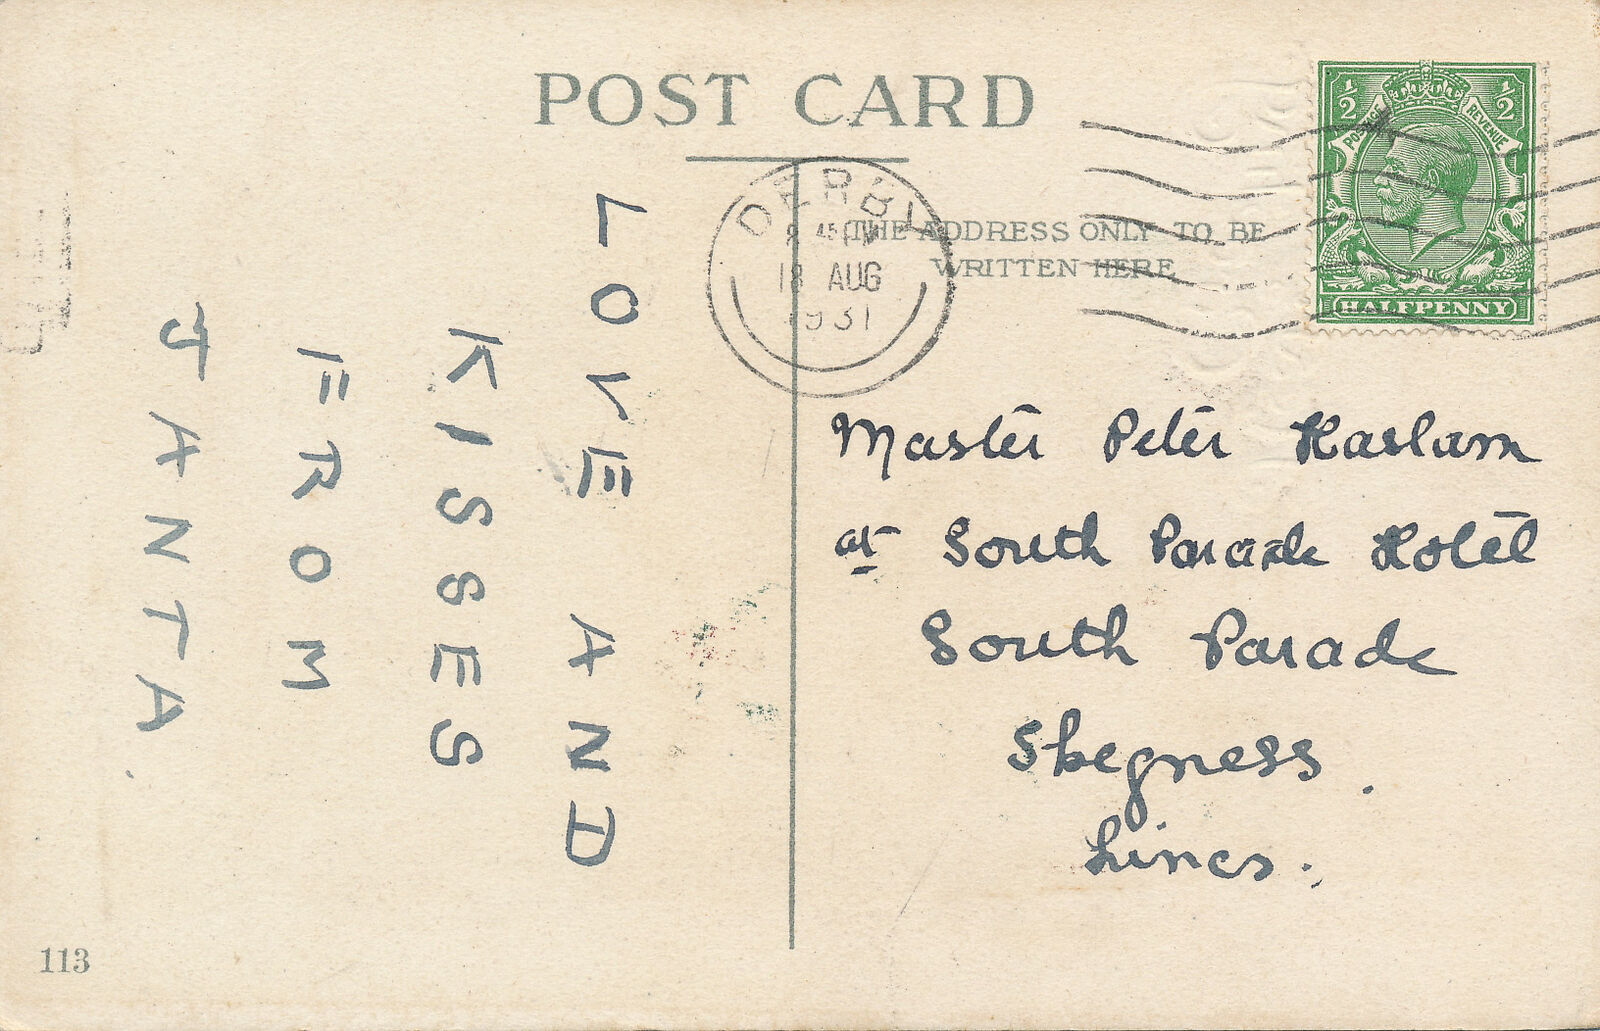 POST CARD
THE ADDRESS ONLY TO BE
WRITTEN HERE
DERBY
45 PM
18 AUG
1931
1/2
1/2
POSTAGE
REVENUE
HALFPENNY
LOVE AND
KISSES
FROM
JANTA
Master Peter Haslam
at South Parade Hotel
South Parade
Skegness.
Lincs.
113